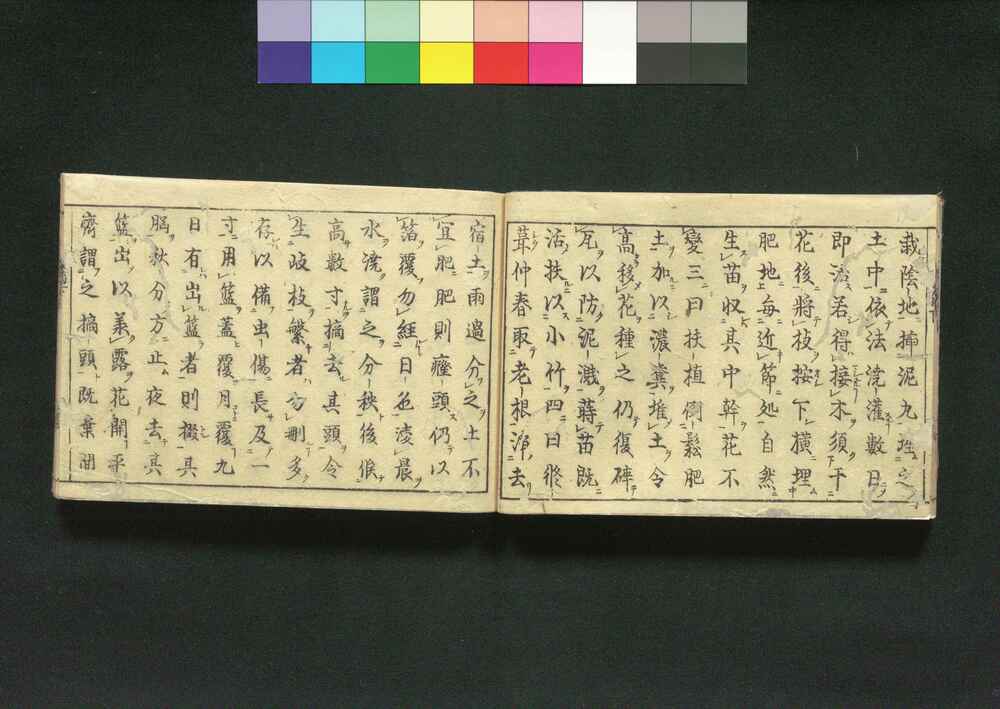 栽陰地掃泥九埋之
土中依法澆灌數日
即活若得接木須干
花後將枝按下横埋
肥地上每近節処自然
生苗収其中幹花不
變三曰扶植倒鬆肥
土加以濃糞堆土令
高移花種之仍復碎
瓦以防泥濺蒔苗既
活扶以小竹四曰
葺仲春取老根淨去
宿土雨過分之土不
宜肥肥則癰頭仍以
箬覆勿經日色凌晨
水澆謂之分秧後候
高數寸摘去其頭令
生岐枝繁者勿刪多
存以備虫傷長及一
寸用籃蓋覆月覆九
日有出籃者則掇其
腦秋分方止夜去其
籃出以羕露花開平
齊謂之摘頭既棄閒